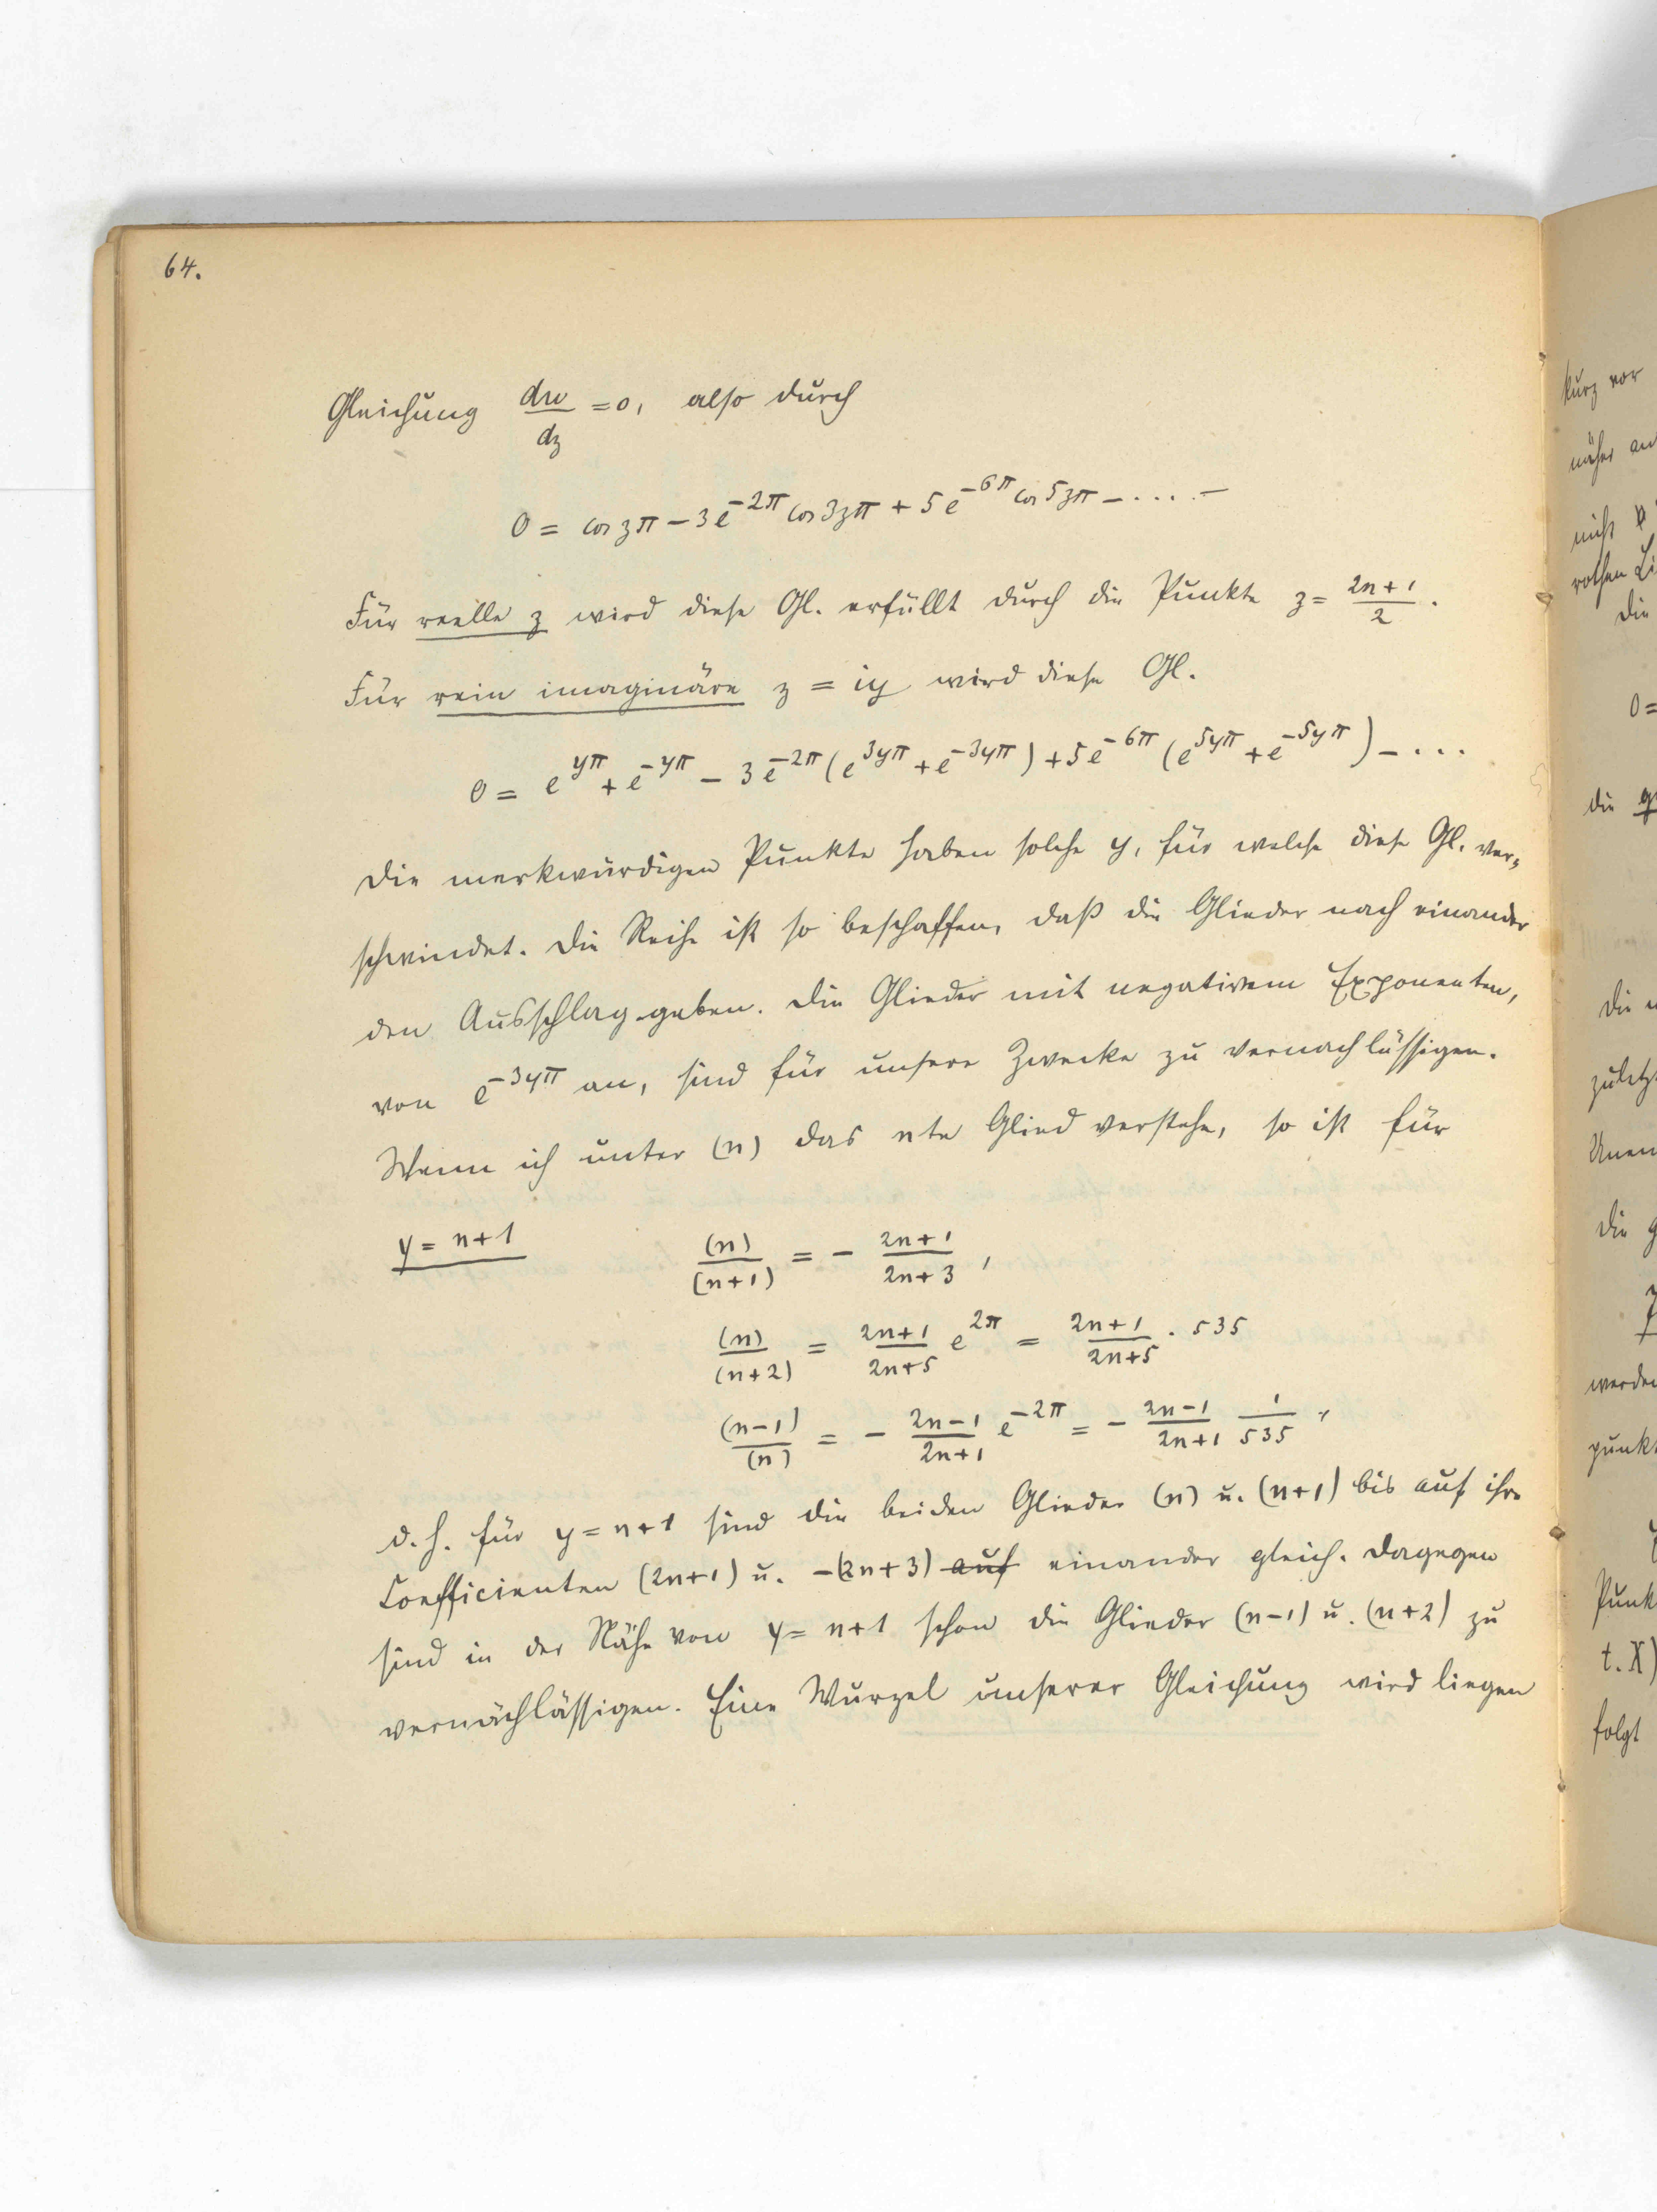 64.
Gleichung dw/dz = 0, also durch
0 = cos zπ − 3e^{−2π} cos 3zπ + 5e^{−6π} cos 5zπ − .... −
Für reelle z wird diese Gl. erfüllt durch die Punkte z = (2n+1)/2.
Für rein imaginäre z = iy wird diese Gl.
0 = e^{yπ} + e^{−yπ} − 3e^{−2π}(e^{3yπ} + e^{−3yπ}) + 5e^{−6π}(e^{5yπ} + e^{−5yπ}) − ...
Die merkwürdigen Punkte haben solche y, für welche diese Gl. ver-
schwindet. Die Reihe ist so beschaffen, daß die Glieder nach einander
den Ausschlag geben. Die Glieder mit negativem Exponenten,
von e^{−3yπ} an, sind für unsere Zwecke zu vernachlässigen.
Wenn ich unter (n) das nte Glied verstehe, so ist für
y = n+1 (n)/(n+1) = − (2n+1)/(2n+3),
(n)/(n+2) = (2n+1)/(2n+5) e^{2π} = (2n+1)/(2n+5) · 535
(n−1)/(n) = − (2n−1)/(2n+1) e^{−2π} = − (2n−1)/(2n+1) 1/535,
d. h. für y = n+1 sind die beiden Glieder (n) u. (n+1) bis auf ihre
Coefficienten (2n+1) u. −(2n+3) auf einander gleich. Dagegen
sind in der Nähe von y = n+1 schon die Glieder (n−1) u. (n+2) zu
vernachlässigen. Eine Wurzel unserer Gleichung wird liegen
kurz vor
näher an
nicht
rothen Li
Die
0 =
die
Die
zuletzt
Unen
Die g
werden
punkt
Punk
t. X)
folgt